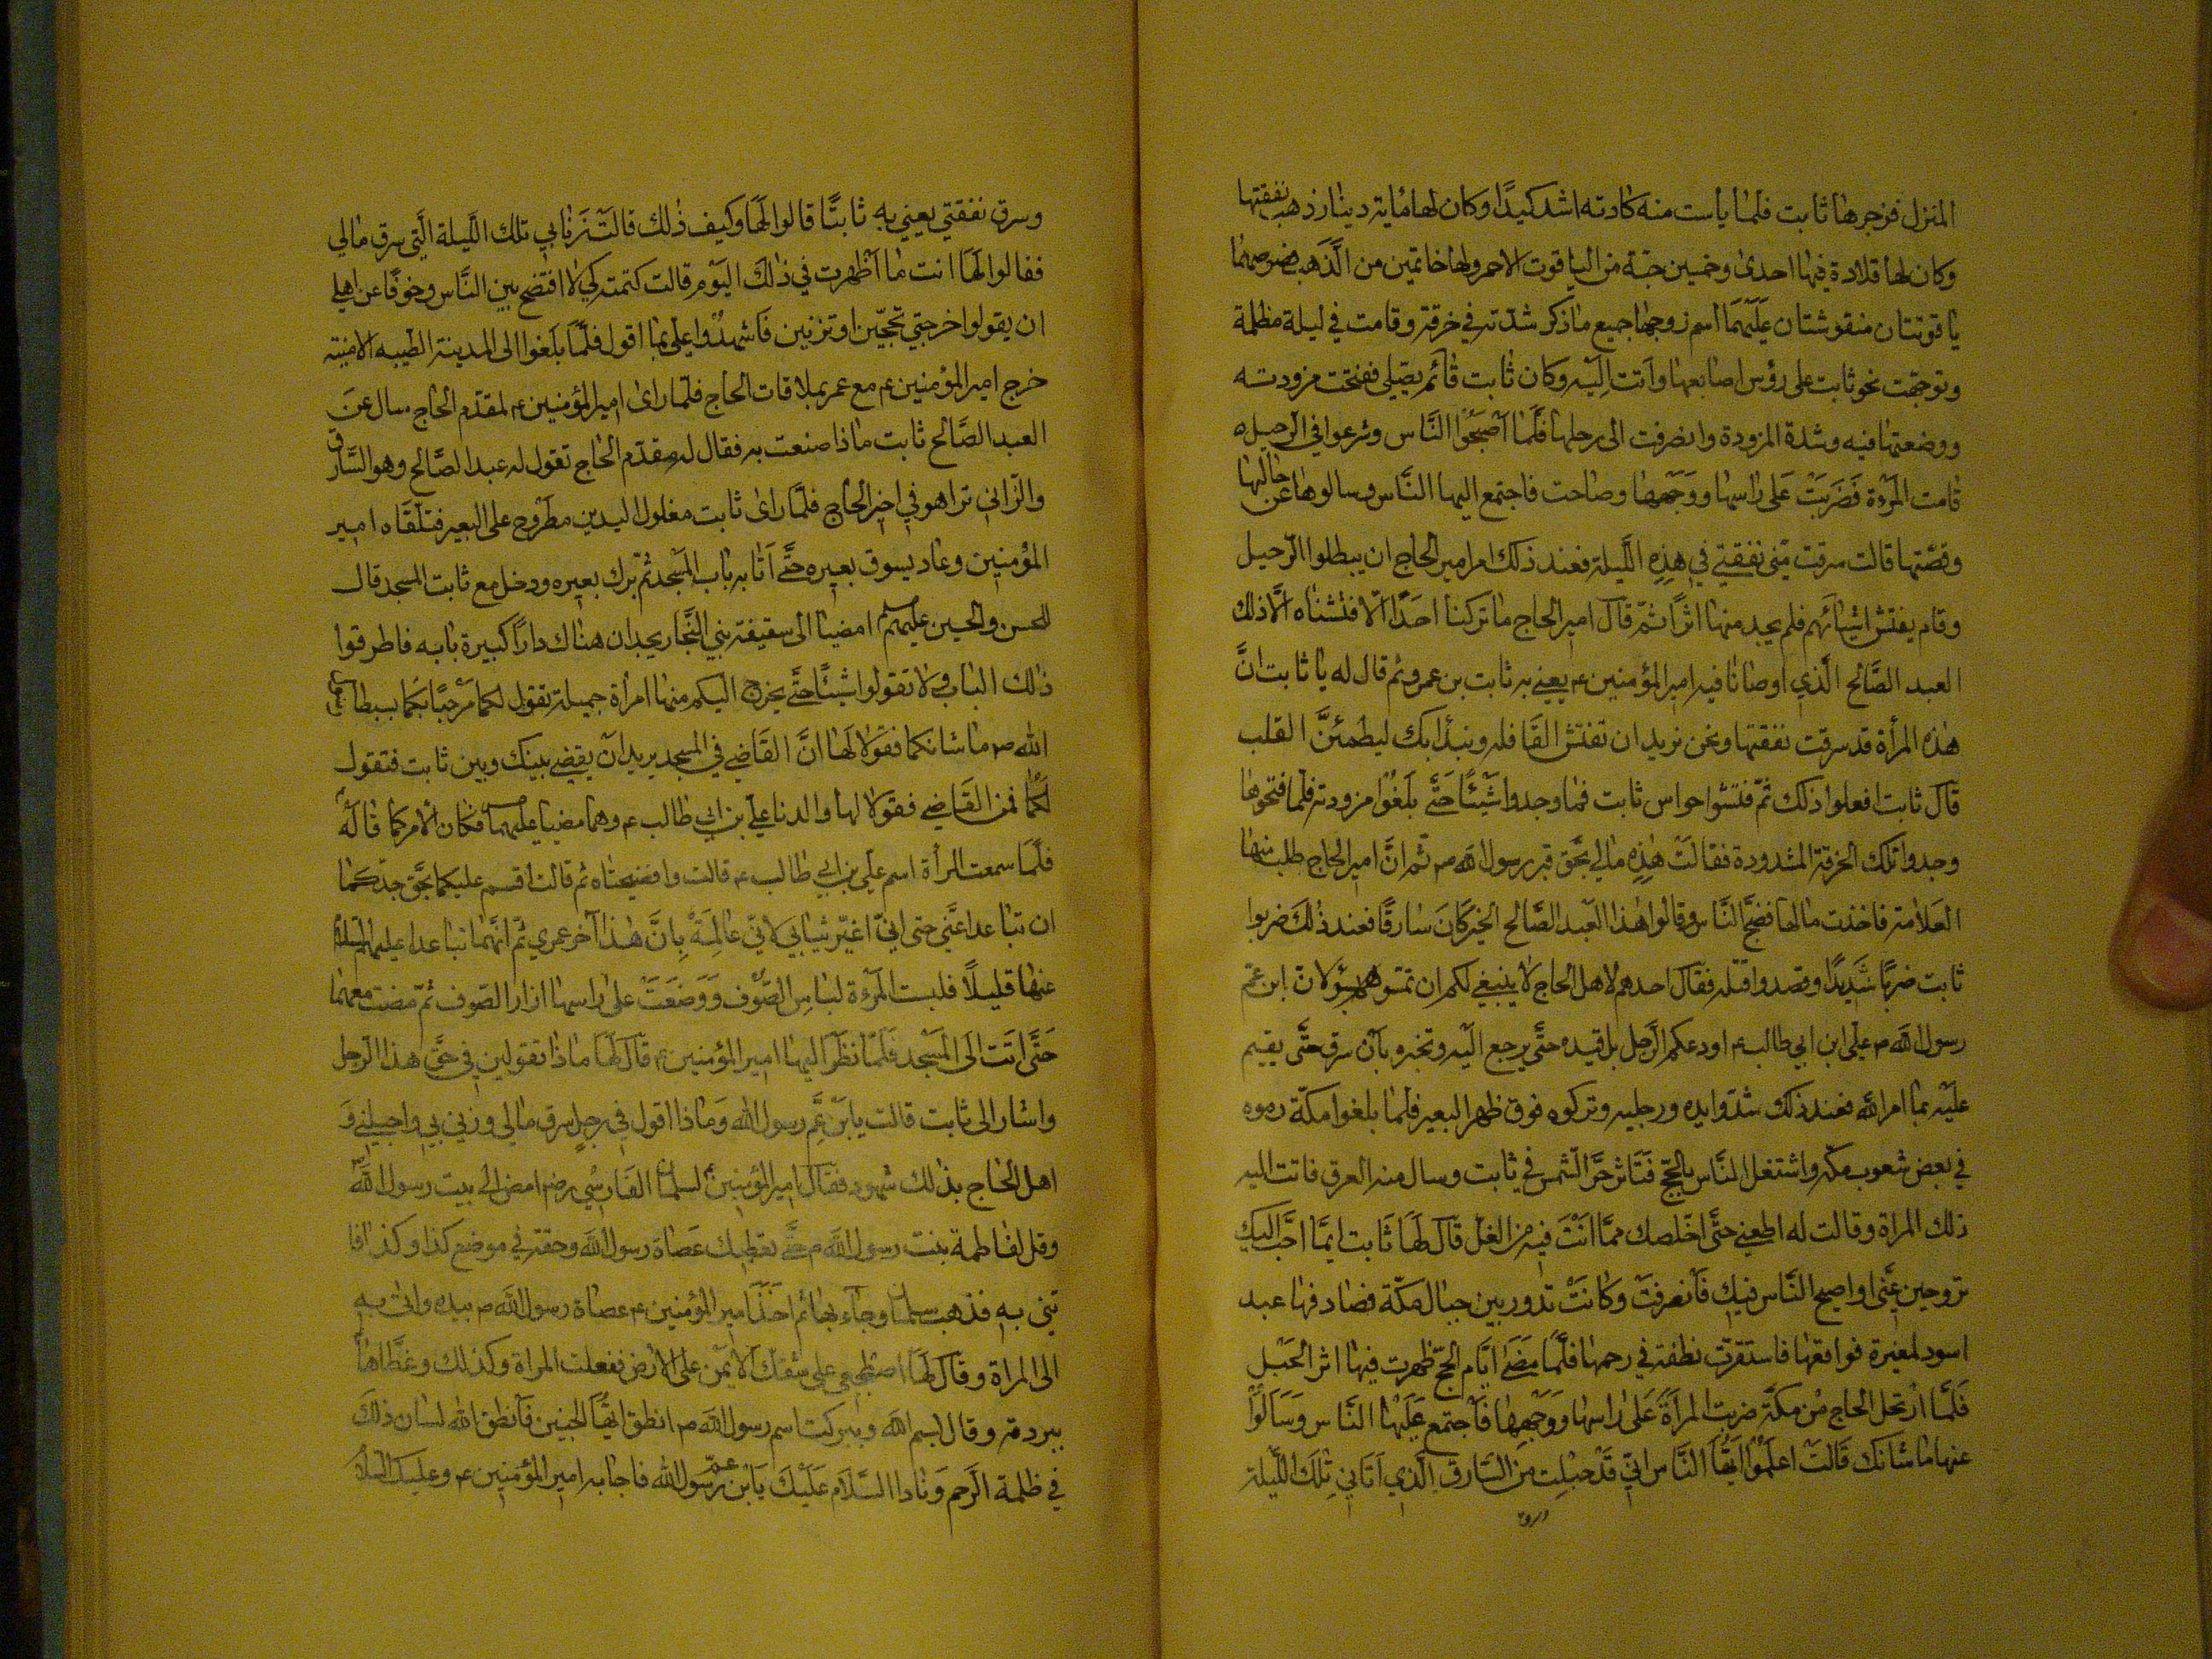 المنزل فزجرها ثابت فلما يأست منه كادته اشد كيدًا وكان لها مائة دينار ذهب نفقتها
وكان لها قلادة فيها احدى وخمسين حبّة من الياقوت الاحمر ولها خاتمين من الذَّهب فصوصهما
ياقوتتان منقوشتان عَلَيْهِمَا اسم زوجها جميع ماذكر شدّته في خرقة وقامت في ليلة مظلمة
وتوجّهت نحو ثابت على رؤس اصابعها واتت اليه وكان ثابت قائم يصلي ففتحت مزودته
ووضعتها فيه وشدة المزودة وانصرفت الى رحلها فلَّما اَصْبَحُوْا النَّاس وشرعوا في الرحيل
قامت المرْءة فَضَرَبَتْ عَلى رَاسها ووَجْهِهَا وصاحت فاجتمع اليها النَّاس وسالوها عن حالها
وقصّتها قالت سرقت منّي نفقتي في هذِهِ اللَّيلة فعند ذلك امر امير الحاج ان يبطلوا الرّحيل
وقام يفتش اشيائهم فلم يجد منها اثرًا ثمّ قال امير الحاج ما تركنا احَدًا الّا فتشناه الَّا ذلك
العبد الصَّالح الَّذي اوصانا فيه امير المؤمنين ع يعني به ثابت بن عمرو ثم قال له يا ثابت انَّ
هذه المرأة قد سرقت نفقتها ونحن نريد ان نفتش القَافله ونبدأ بك ليطمئنَّ القلب
قال ثابت افعلوا ذلك ثمّ فتشوا حواس ثابت فما وجدوا شَيْئًا حَتَّى بلَغُوْا مزودته فلما فتحوها
وجدوا تلك الخرقة المشدودة فقالتْ هٰذِهِ مالي بحَّق قبر رسول اللّه ص ثم انَّ امير الحاج طلب منها
العَلامة فاخذت مالها فضجَّ النَّاس وقالوا هٰذا العَبد الصَّالح الخيّر كَانَ سَارقًا فعند ذٰلكَ ضربوا
ثابت ضربًا شَدِيدًا وقصدوا قتله فقال احدهم لاهل الحاج لا ينبغي لكم ان تمسّوه بسوٓء لانّ ابن عمّ
رسول اللّه ص علي ابن ابي طالب ع اودعكم الرَّجل بل قيده حتَّى يرجع الَيْه وتخبروه بأن سرق حتَّى يقيم
عليْه بما امر اللّه فعند ذلك شدّوا يده ورجليه وتركوه فوق ظهر البعير فلما بلغوا مكّة رموه
في بعض شعوب مكه واشتغل النَّاس بالحجّ فتاثر حَرّ الشمس في ثابت وسال منه العرق فاتت اليه
ذلك المراة وقالت له اطعني حتَّى اخلصك ممّا انْتَ فيه من الغل قَالَ لَهَا ثَابت ايمَّا احَّب اليك
تروحين عنّي او اصيح النَّاس فيك فَانصرفتْ وكَانَتْ تدور بين جبال مكّة فصادفها عبد
اسود لمغيرة فواقعها فاستقرّت نطفته في رحمها فلَّما مَضَى ايَّام الحجّ ظهرت فيها اثر الحَبل
فَلَّما ارْتحل الحاج مِنْ مكَّة ضربت المرأةُ عَلى رَاسها ووَجْهِهَا فَاجتمع عَلَيْهَا النَّاس وَسَالُوْا
عنها ما شانك قَالَتْ اعلَمُوْا ايّهَا النَّاس انّي قَدْ حبلت مِنَ السَّارق الَّذي اَتاني تِلكَ اللَّيلة
وسرق
وسرق نفقتي يعني به ثابتًّا قالوا لَهَا وكيف ذٰلك قالَتْ زَنَا بي تلك اللَّيلة الَّتي سرق مالي
فقالوا لَهَا انت ما اَظْهرت في ذلك اليَوْم قالت كتمته لكي لا افتضح بين النَّاس وخوفًا عن اهلي
ان يقولوا اخرجتي تحجّين او تزنين فَاشهدُوا علي بما اقول فلَّما بَلَغوا الى المدينة الطّيبه الامنية
خرج امير المؤمنين ع مع عمر بملاقات الحاج فلمّا راى امير المؤمنين ع لمقدّم الحاج سال عنَ
العبد الصَّالح ثابت ماذا صنعت به فقال له مقدّم الحاج تقول له عبد الصَّالح وهو السَّارق
والزّاني تراهو في اخر الحاج فلمَّا راى ثابت مغلول اليدين مطَرْوح على البعير فتلقَّاه امير
المؤمنين وعاد يسوق بعيره حتَّى اَتَا به باب المسْجد ثمّ برك بعيره ودخل مع ثابت المسجد قال
للحسن والحسين عليهم السلم امضيا الى سقيفة بني النَّجار يجدان هناك دارًا كبيرة بابه فاطرقوا
ذلك الباب ولا تقولوا شيئًا حتَّى يخرج اليكم منها امرأة جميلة تقول لكما مَرْحبًا بكما سبطا نبي
اللّه ص ما شانكما فقولا لَها انَّ القَاضي في المسجد يريد انْ يقضي بينك وبين ثابت فتقول
لكما فمن القَاضي فقولا لها والدنا علي بن ابي طالب ع وهما مضيا عليهما فكان الامر كما قالَهُ
فلَّما سمعت المرأة اسم علي بن ابي طالب ع قالت وافضيحتاه ثم قالت اقسم عليكما بحَّق جدّكما
ان تباعدا عَّني حتى انّي اغيّر ثيابي لانّي عالِمَةٌ بِانَّ هٰذا آخر عمري ثمّ انَّهما تباعدا عليهما السلام
عنها قليلًا فلبست المرْءة لباس الصّوف وَوَضعَتْ على رَاسها ازار الصّوف ثمّ مضت معهما
حَتَّى اتَت الَى المَسْجد فَلَّما نظَر اليها امير المؤمنين ع قالَ لَهَا ماذَا تقولين في حَقّ هذا الرّجل
واشار الى ثابت قالت يابَنْ عَّمِ رسول اللّه وَماذا اقول في رجلٍ سرق مالي وزني بي واحبلني وَ
اهل الحاج بذلك شهود فقال امير المؤمنين لسلمان الفَارسي رض امض الى بيت رسول اللّه
وقل لفاطمة بنت رسول اللّه ص حتَّى تعطيك عَصاة رسول اللّه وحقته في موضع كذا وكذا فا
تني به فذهب سلمان وجآء بها ثم اخَذَ امير المؤمنين ع عصاة رسول اللّه ص بيده واتى به
الى المراة وقالَ لَها اضطجعي على شقك الايْمَن على الارض ففعلت المراة وكذلك وغطَّاها
ببردة وقال بسم اللّه وببركت اسم رسول اللّه ص انطق ايّهَا الجنين فَانطق اللّه لسَان ذلكَ
في ظلمة الرّحم وَنادا السَّلَام عَلَيْكَ يَابْن عمّ رَسول اللّه فاجابه امير المؤمنين ع وعليك السلام